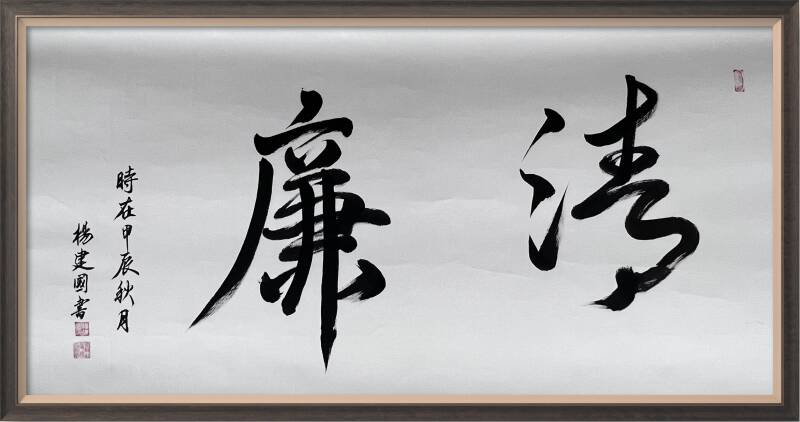 清廉
時在甲辰秋月
楊建國書